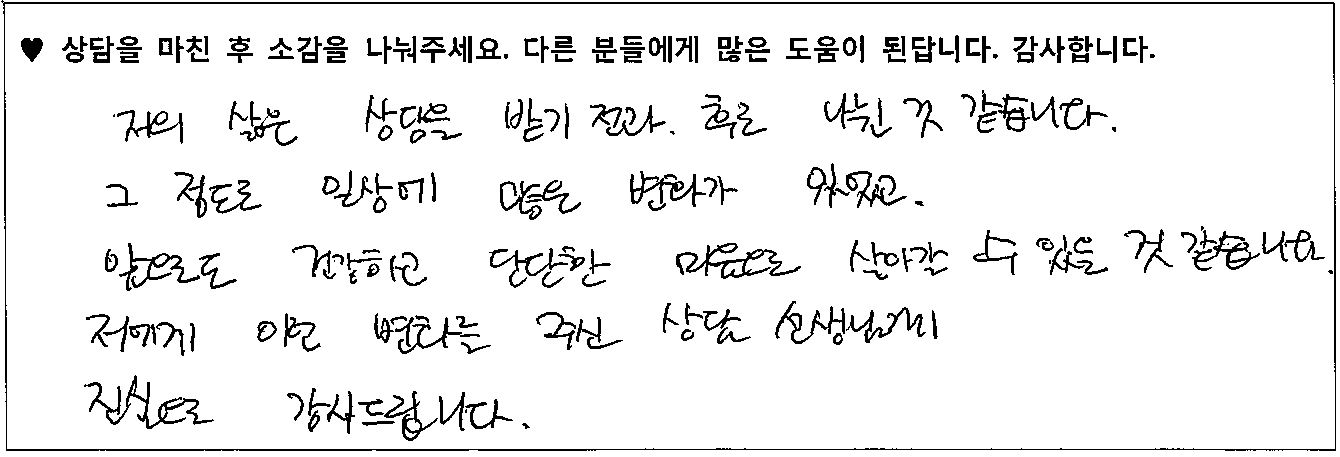 ♥ 상담을 마친 후 소감을 나눠주세요. 다른 분들에게 많은 도움이 된답니다. 감사합니다.
저의 삶은 상담을 받기 전과. 후로 나뉜 것 같습니다.
그 정도로 일상에 많은 변화가 있었고.
앞으로도 건강하고 단단한 마음으로 살아갈 수 있을 것 같습니다.
저에게 이런 변화를 주신 상담 선생님께
진심으로 감사드립니다.